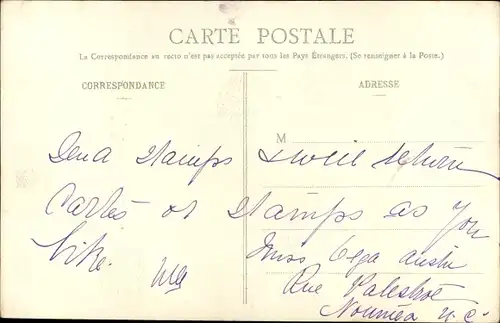 CARTE POSTALE
La Correspondance au recto n'est pas acceptée par tous les Pays Étrangers. (Se renseigner à la Poste.)
CORRESPONDANCE
ADRESSE
M
Send Stamps I will return
Cartes or Stamps as You
like.
Miss Olga
Rue Palestro
Nouméa N.C.